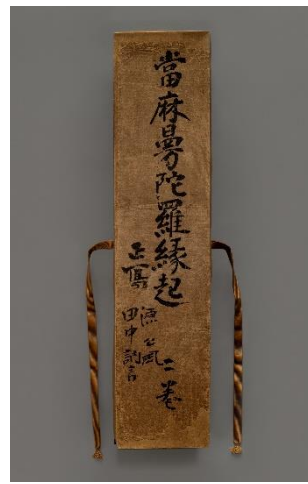 當麻曼陀羅縁起 二巻
正寫
田中訥言